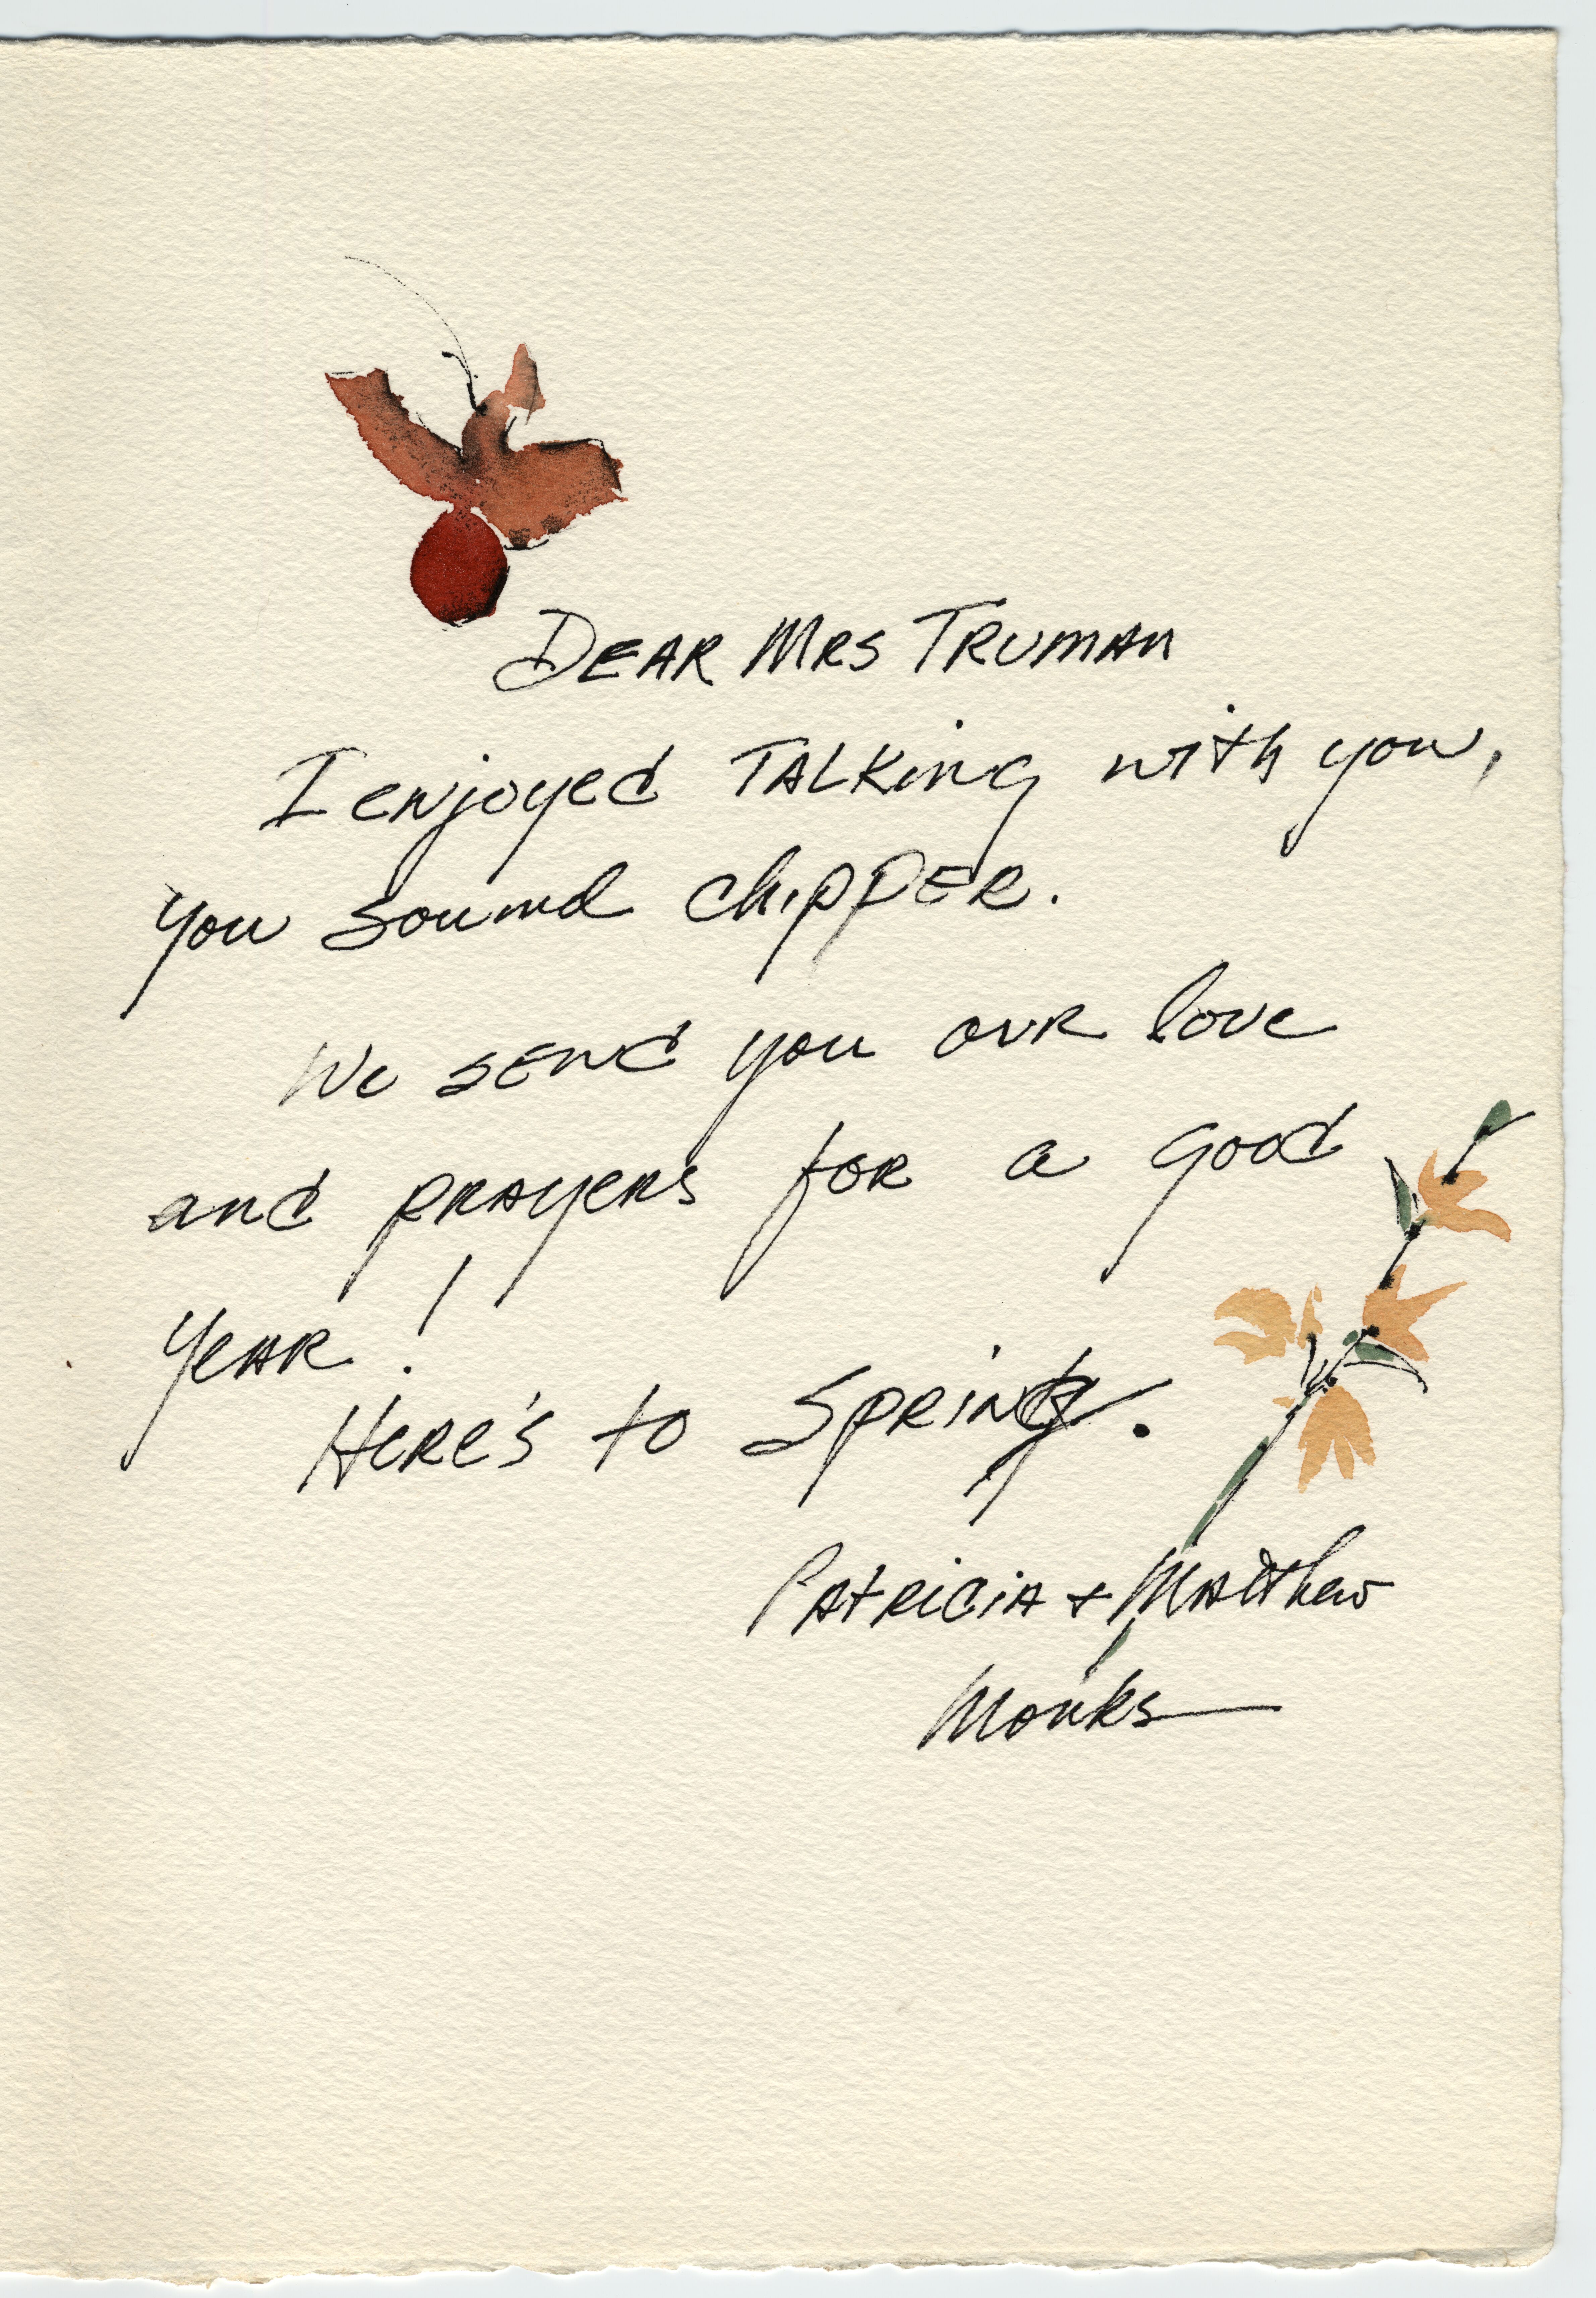 Dear Mrs Truman
I enjoyed talking with you,
you sound chipper.
We send you our love
and prayers for a good
year!
Here's to Spring.
Patricia + Matthew
Monks